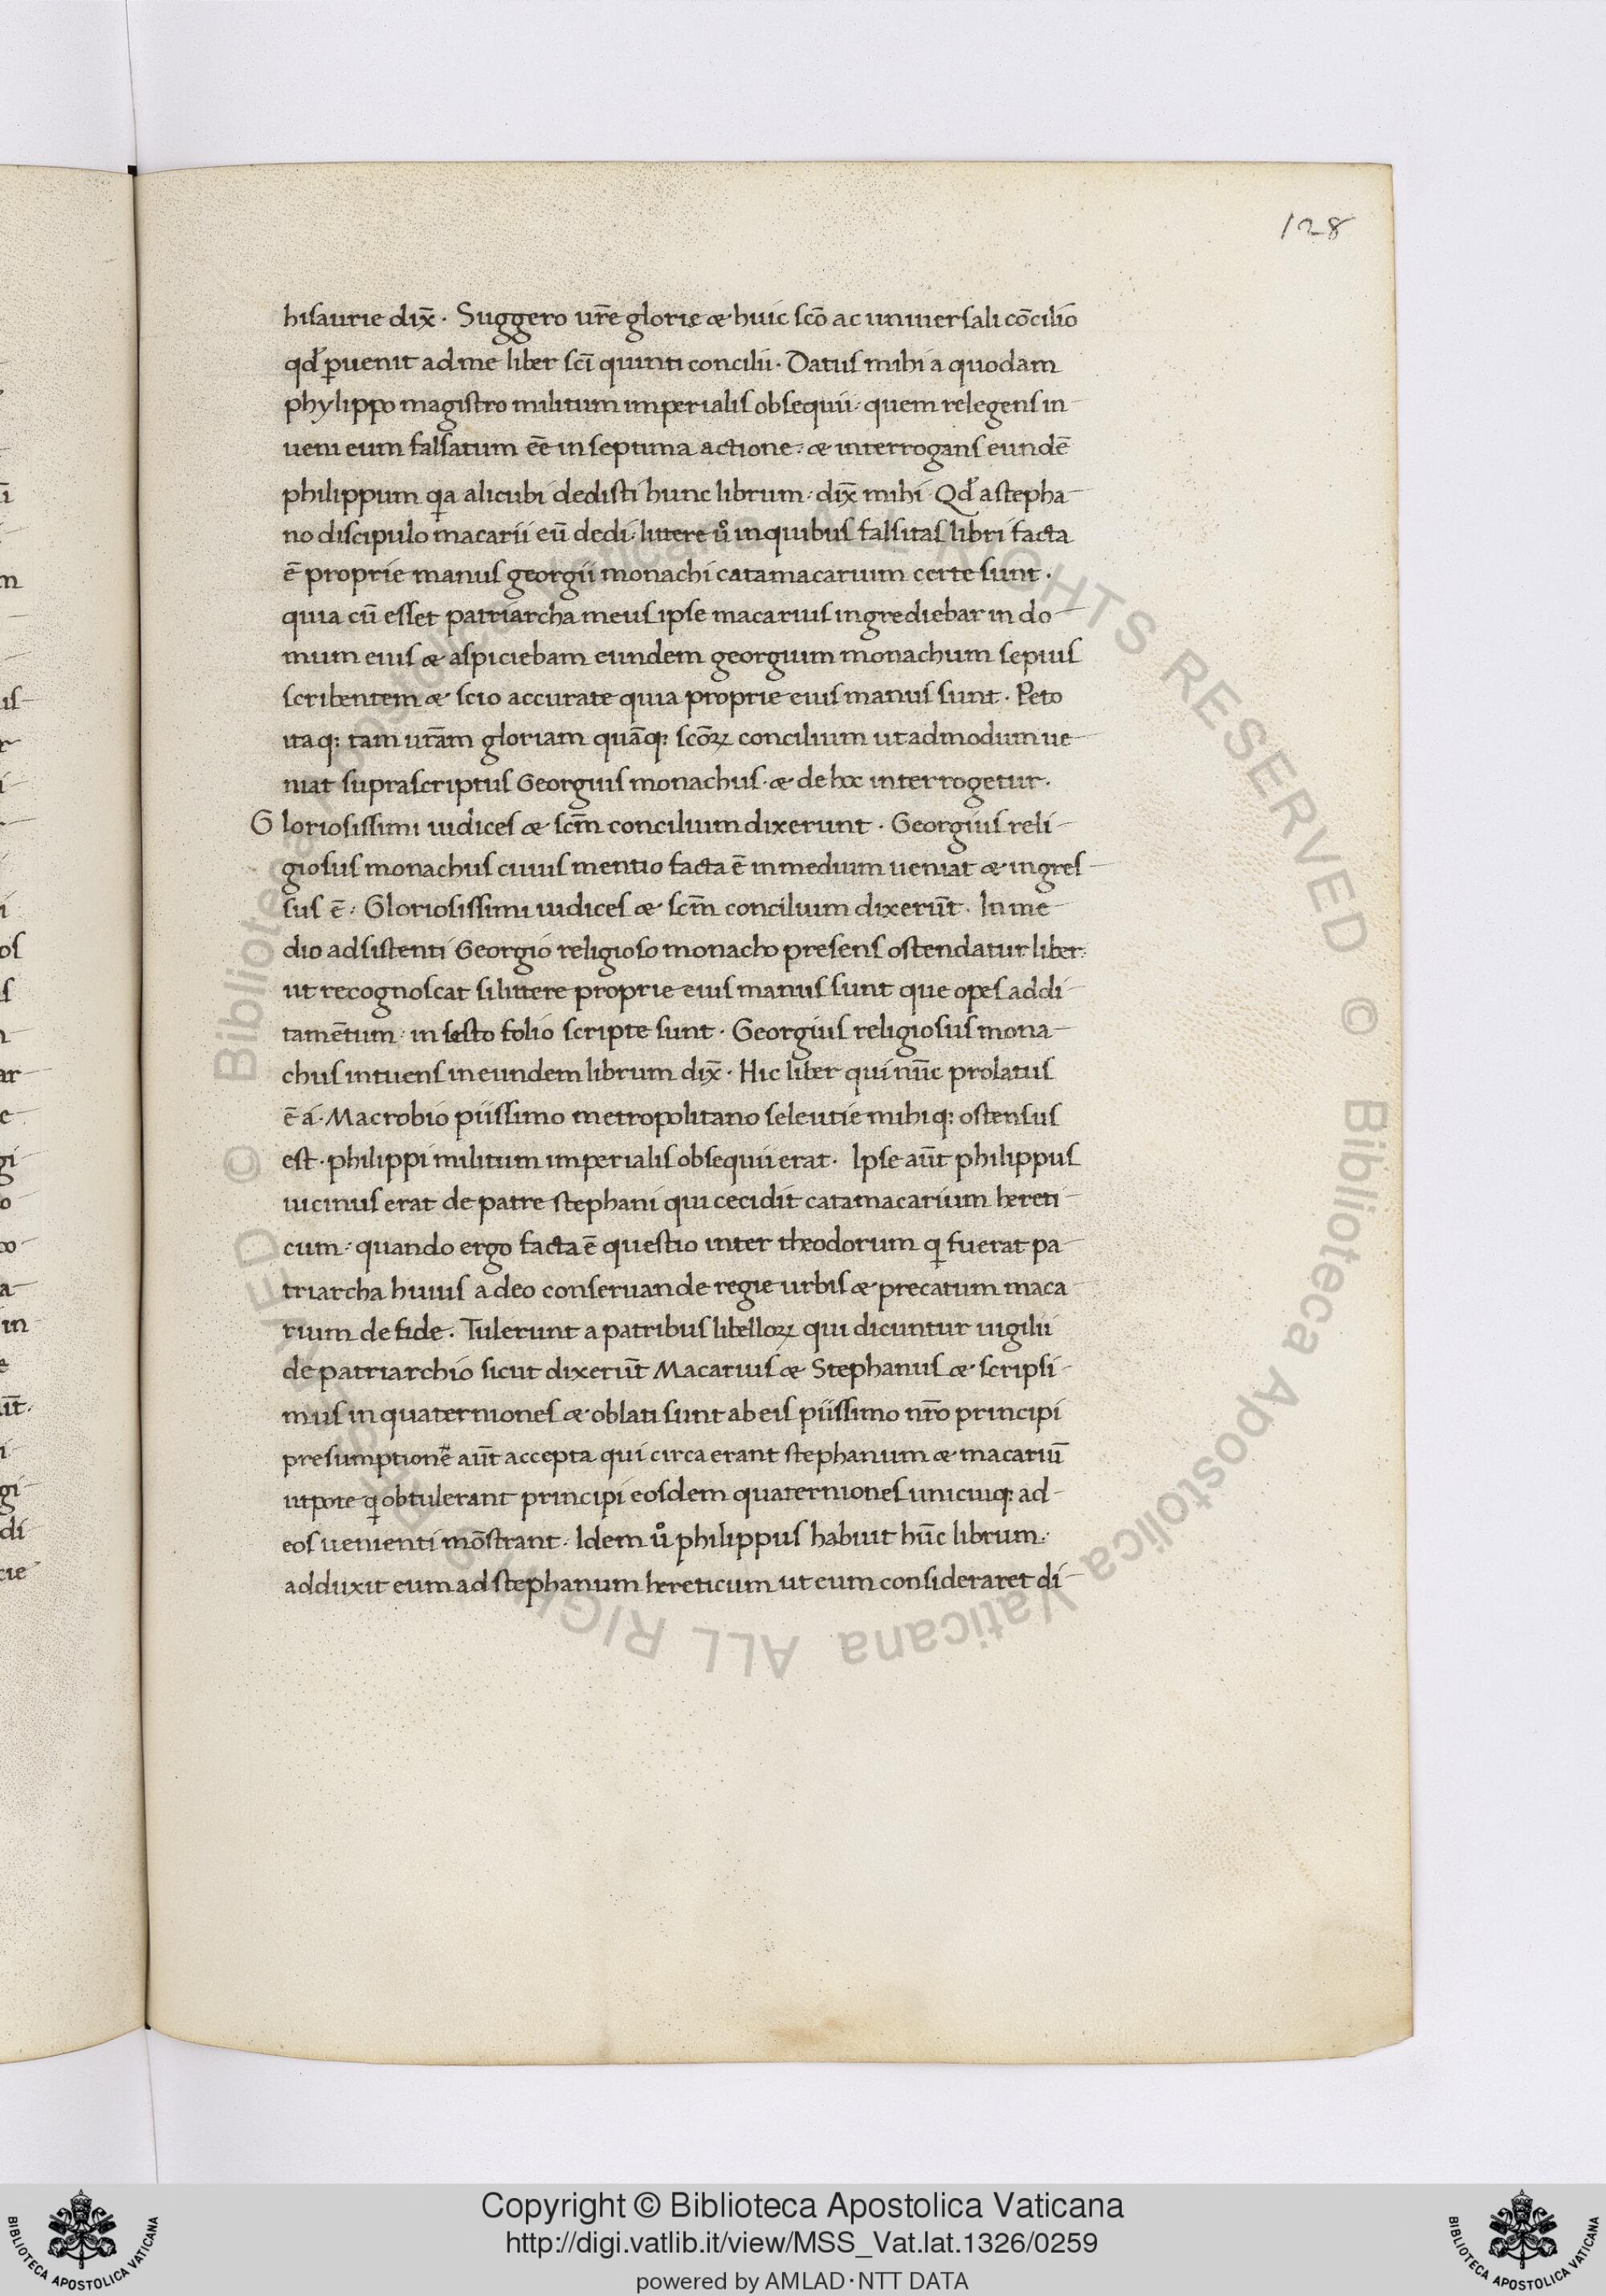 128
hisaurie dix̄. Suggero ur̄e glorie & huic sc̄o ac uniuersali cōcilio
qđ ꝑuenit ad me liber sc̄i quinti concilii. Datus mihi a quodam
phylippo magistro militum imperialis obsequii. quem relegens in-
ueni eum falsatum eē in septima actione. & interrogans eundē
philippum qa alicubi dedisti hunc librum. dix̄ mihi. Qđ a stepha-
no discipulo macarii eū dedi. littere uº in quibus falsitas libri facta
ē proprie manus georgii monachi catamacarium certe sunt.
quia cū esset patriarcha meus ipse macarius ingrediebar in do-
mum eius & aspiciebam eundem georgium monachum sepius
scribentem & scio accurate quia proprie eius manus sunt. Peto
itaq: tam ur̄am gloriam quāq: sc̄oꝝ concilium ut admodum ue-
niat suprascriptus Georgius monachus. & de hoc interrogetur.
Gloriosissimi iudices & sc̄m concilium dixerunt. Georgius reli-
giosus monachus cuius mentio facta ē in medium ueniat & ingres-
sus ē. Gloriosissimi iudices & sc̄m concilium dixerūt. In me-
dio adsistenti Georgio religioso monacho presens ostendatur liber.
ut recognoscat si littere proprie eius manus sunt que opes addi-
tamētum. in sesto folio scripte sunt. Georgius religiosus mona-
chus intuens in eundem librum dix̄. Hic liber qui nūc prolatus
ē á. Macrobio piissimo metropolitano seleutie mihiq: ostensus
est. philippi militum imperialis obsequii erat. Ipse aūt philippus
uicinus erat de patre stephani qui cecidit catamacarium hereti-
cum. quando ergo facta ē questio inter theodorum q fuerat pa-
triarcha huius a deo conseruande regie urbis & precatum maca
rium de fide. Tulerunt a patribus libelloꝝ qui dicuntur uigilii
de patriarchio sicut dixerūt Macarius & Stephanus & scripsi-
mus in quaterniones & oblati sunt ab eis piissimo nr̄o principi
presumptionē aūt accepta qui circa erant stephanum & macariū
utpote q obtulerant principi eosdem quaterniones unicuiq: ad-
eos uenienti mōstrant. Idem uº philippus habuit hūc librum.
adduxit eum ad stephanum hereticum ut eum consideraret di-
Copyright © Biblioteca Apostolica Vaticana
http://digi.vatlib.it/view/MSS_Vat.lat.1326/0259
powered by AMLAD·NTT DATA